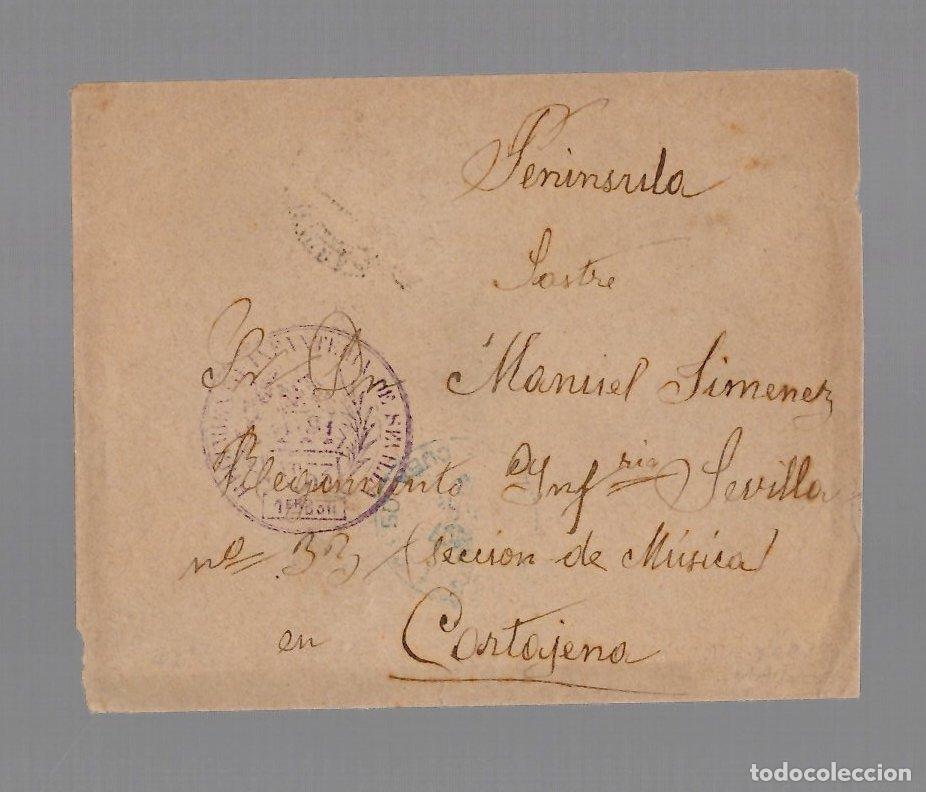 Peninsula
Sastre
Sr Dn Manuel Jimenez
Rejimiento Ynfria Sevilla
nº 33 (seccion de Música)
en Cartajena
INFANTERIA DE SEVILLA
CUBA
todocoleccion